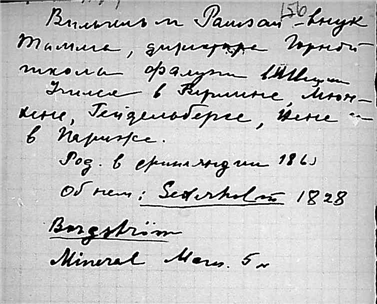 156
Вильгельм Рамзай – внук
Тамма, директора Горной
школы Фалуни в Швеции
Учился в Берлине, Мюн-
хене, Гейдельберге, Вене и
в Париже.
Род. в Финляндии 186
Об нем: Sederholm 1928
Borgström
Mineral Mag.